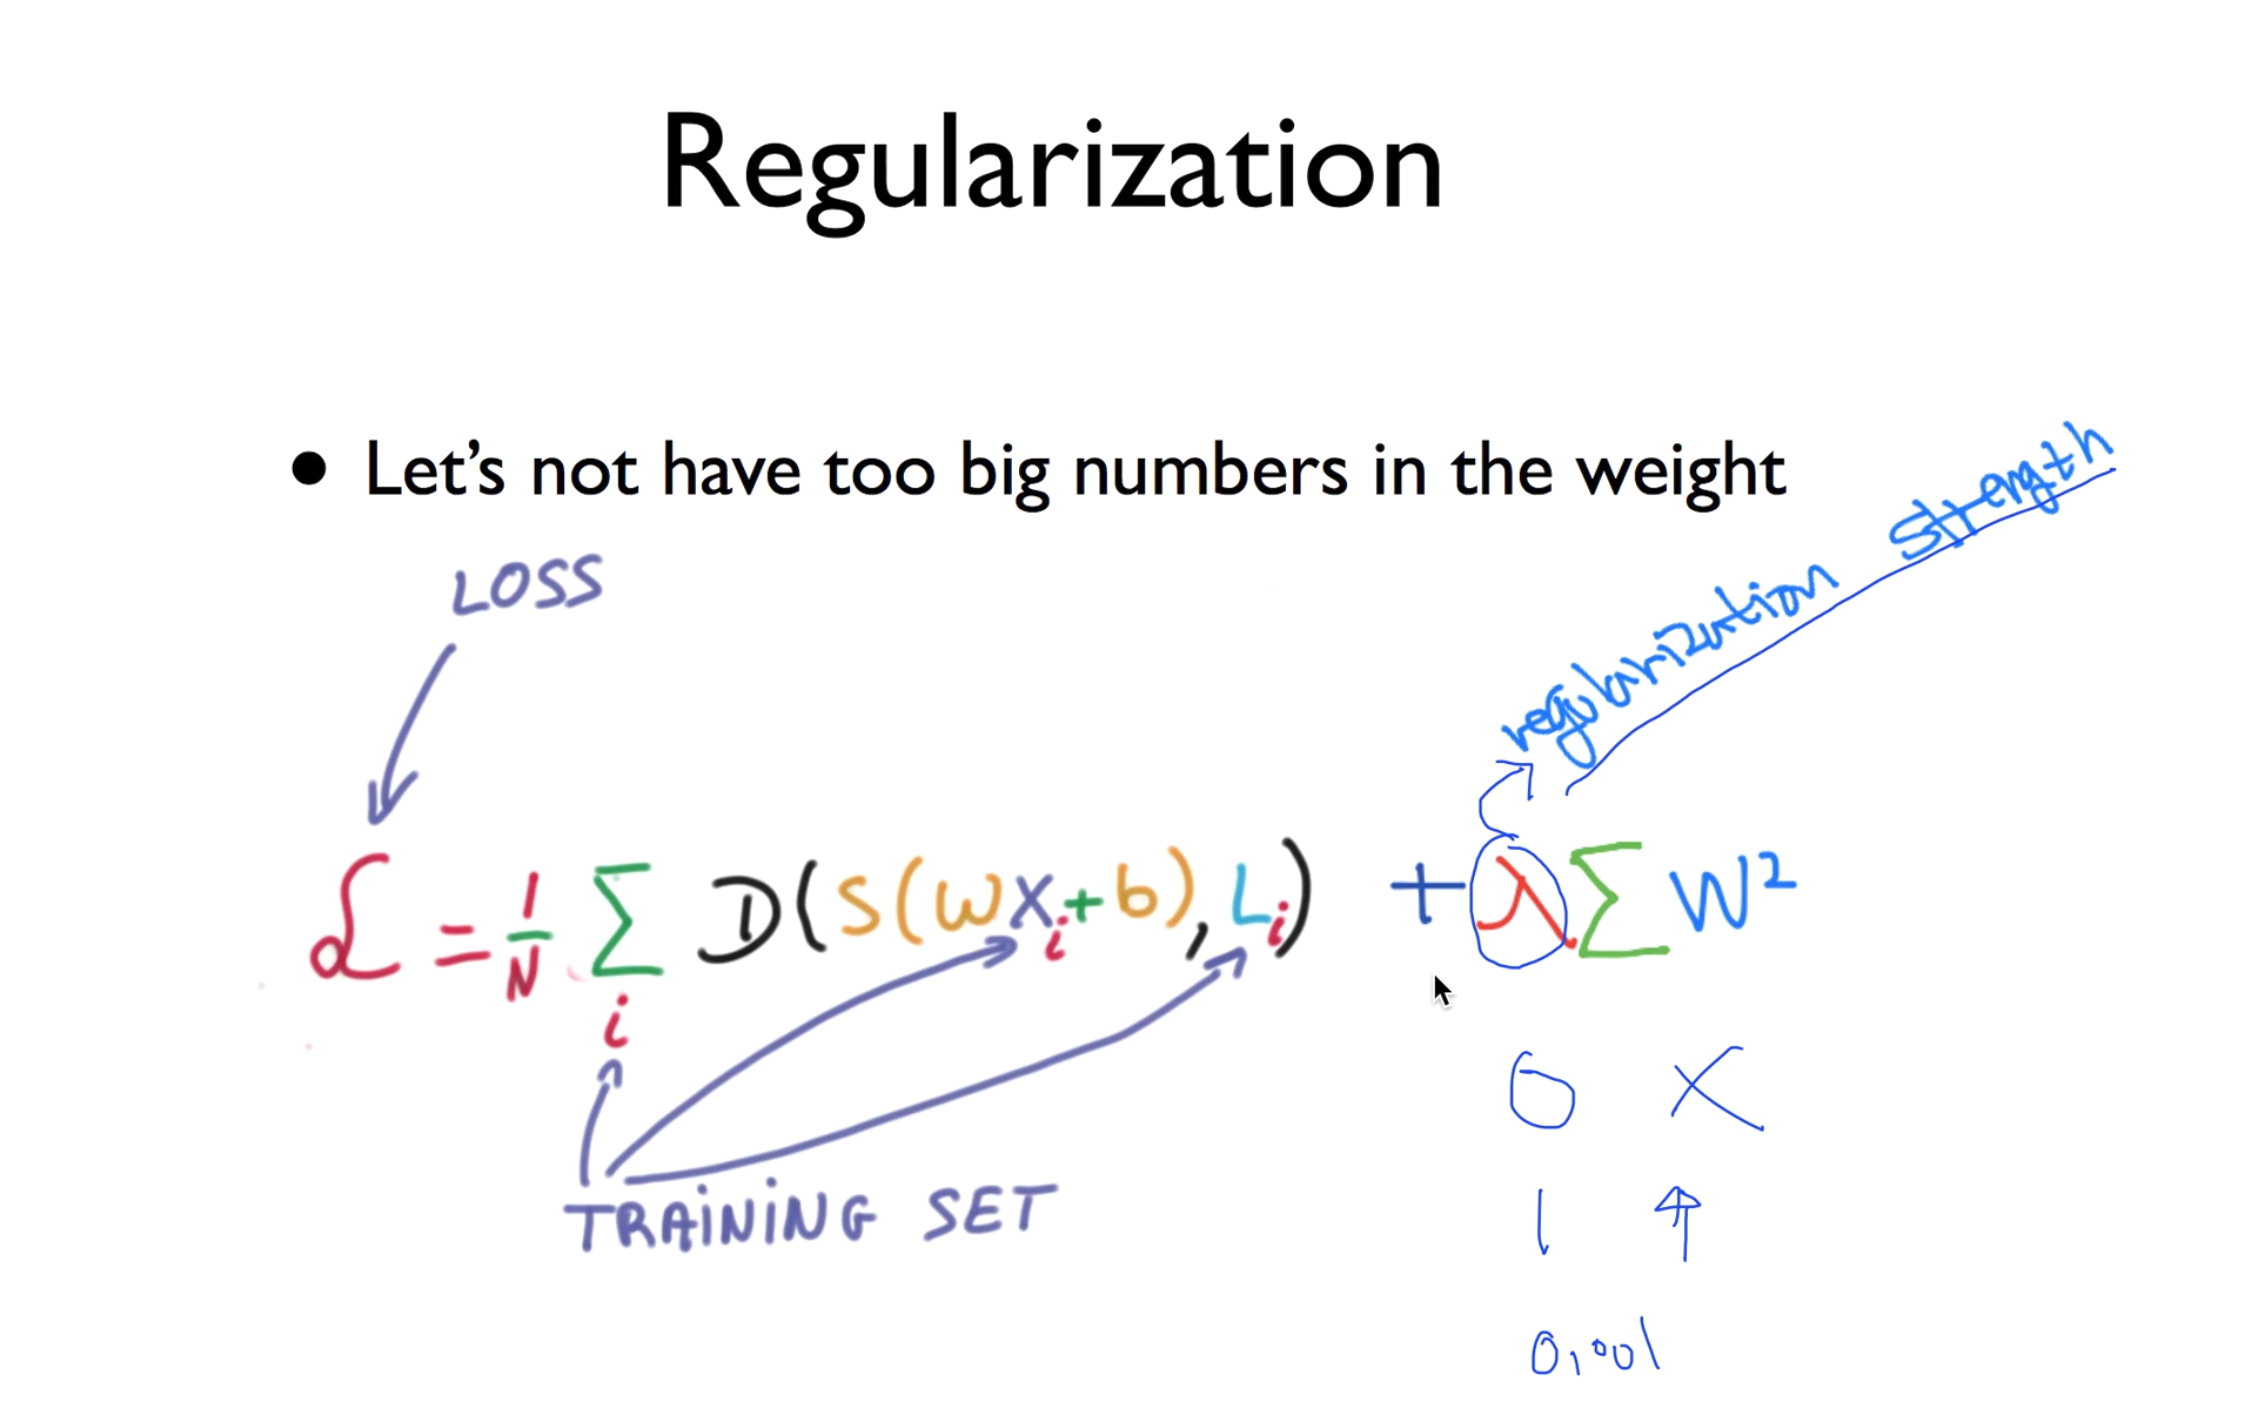 Regularization
• Let's not have too big numbers in the weight
regularization strength
LOSS
ℒ = 1/N Σ_i D(S(wx_i+b), L_i) + λ Σ W²
0 X
1 ↑
TRAiNiNG SET
0.001